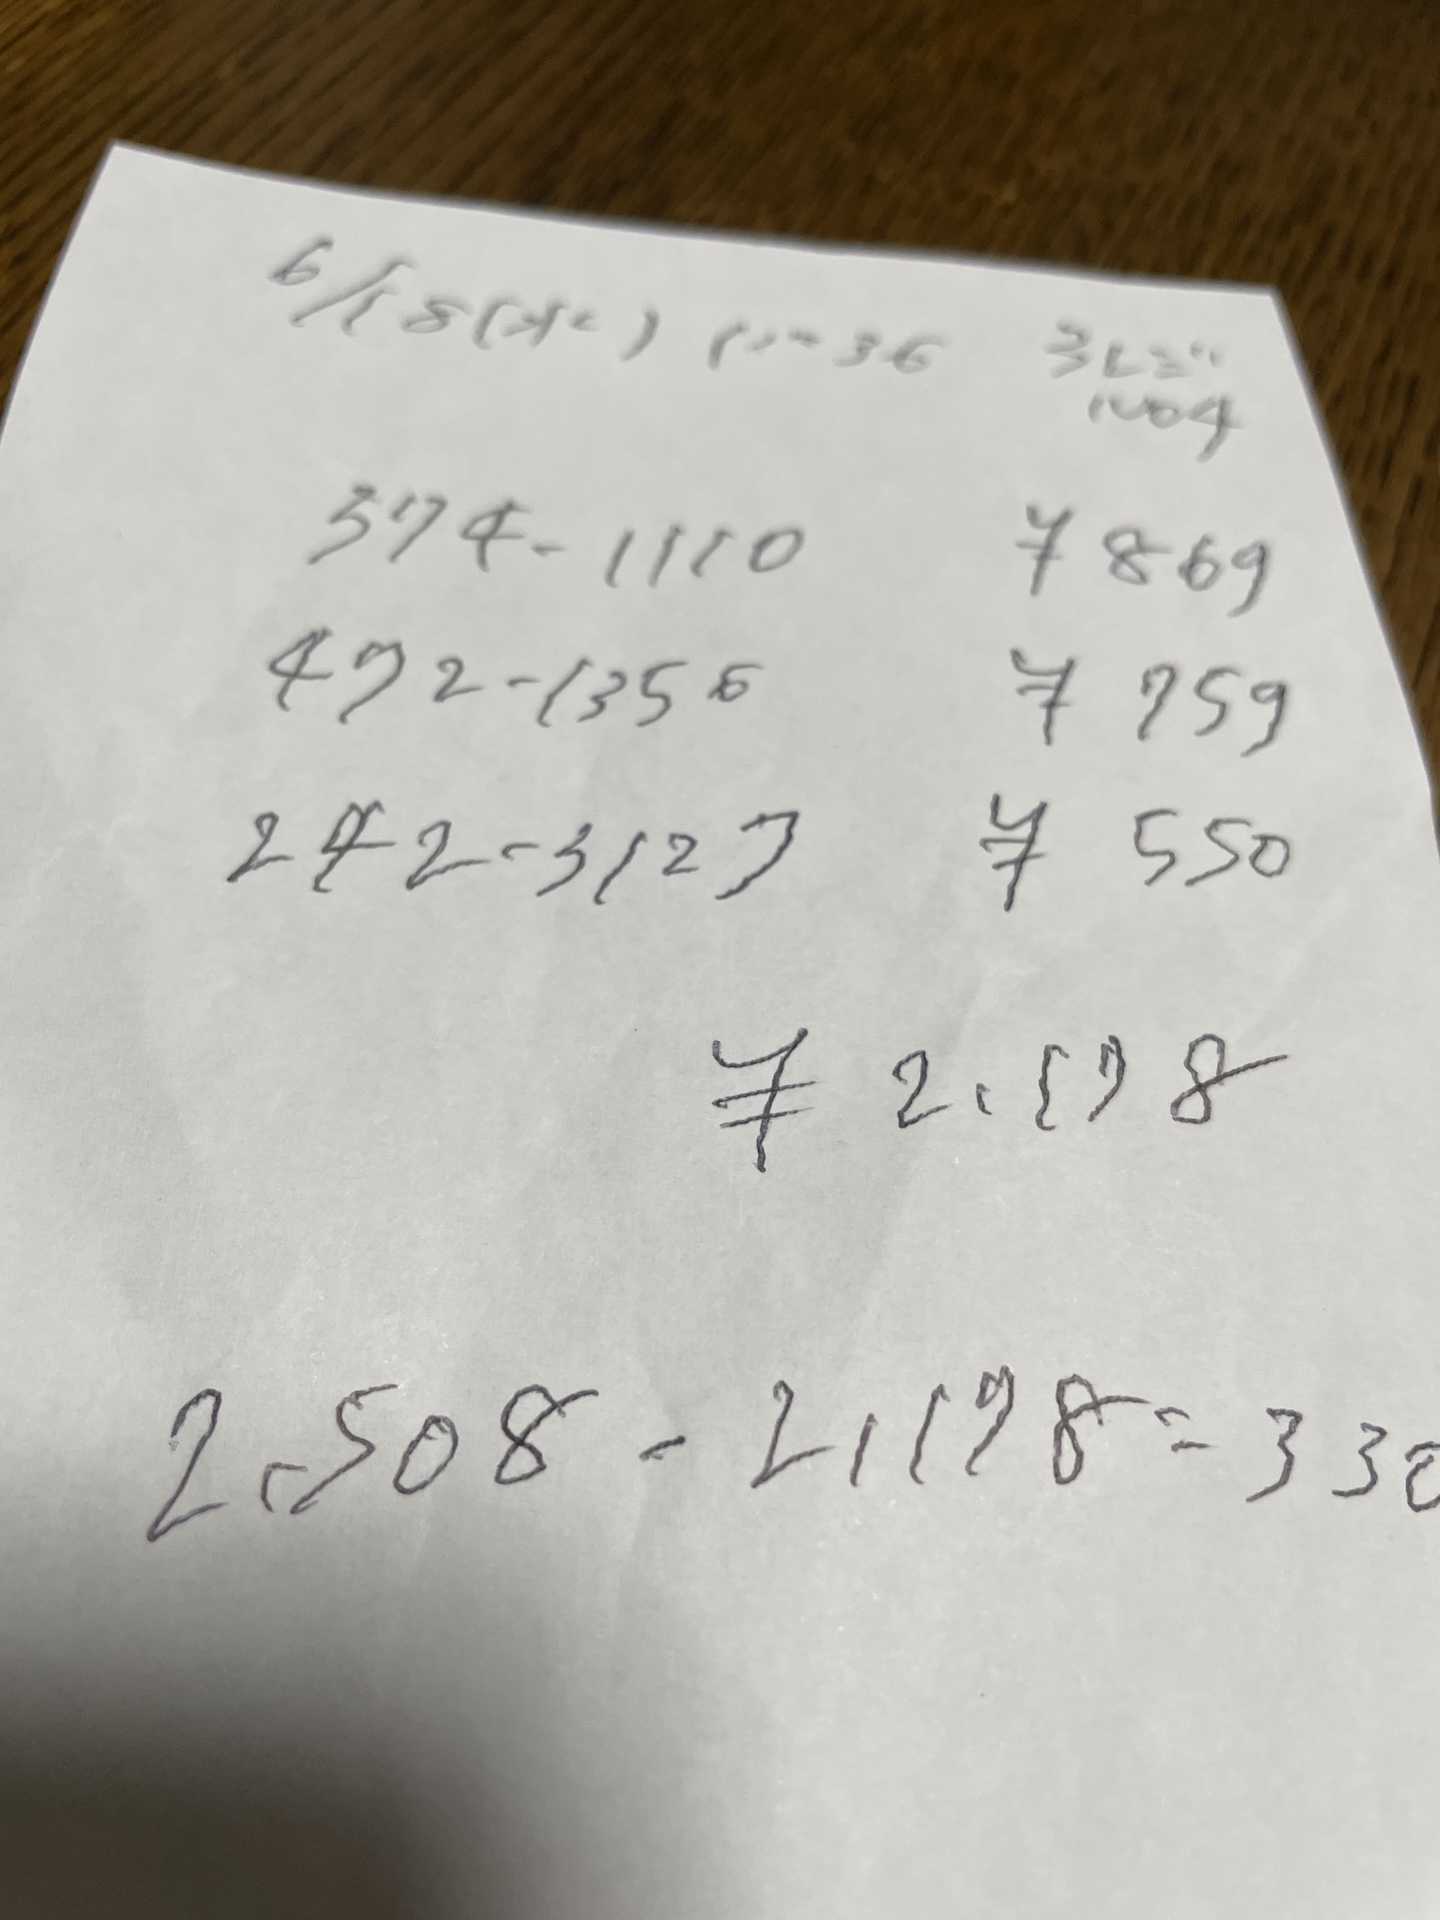 6/18(水) 11-36 3レジ
No4
374-1110 ¥869
472-1356 ¥759
242-3127 ¥550
¥2,178
2,508-2,178=330